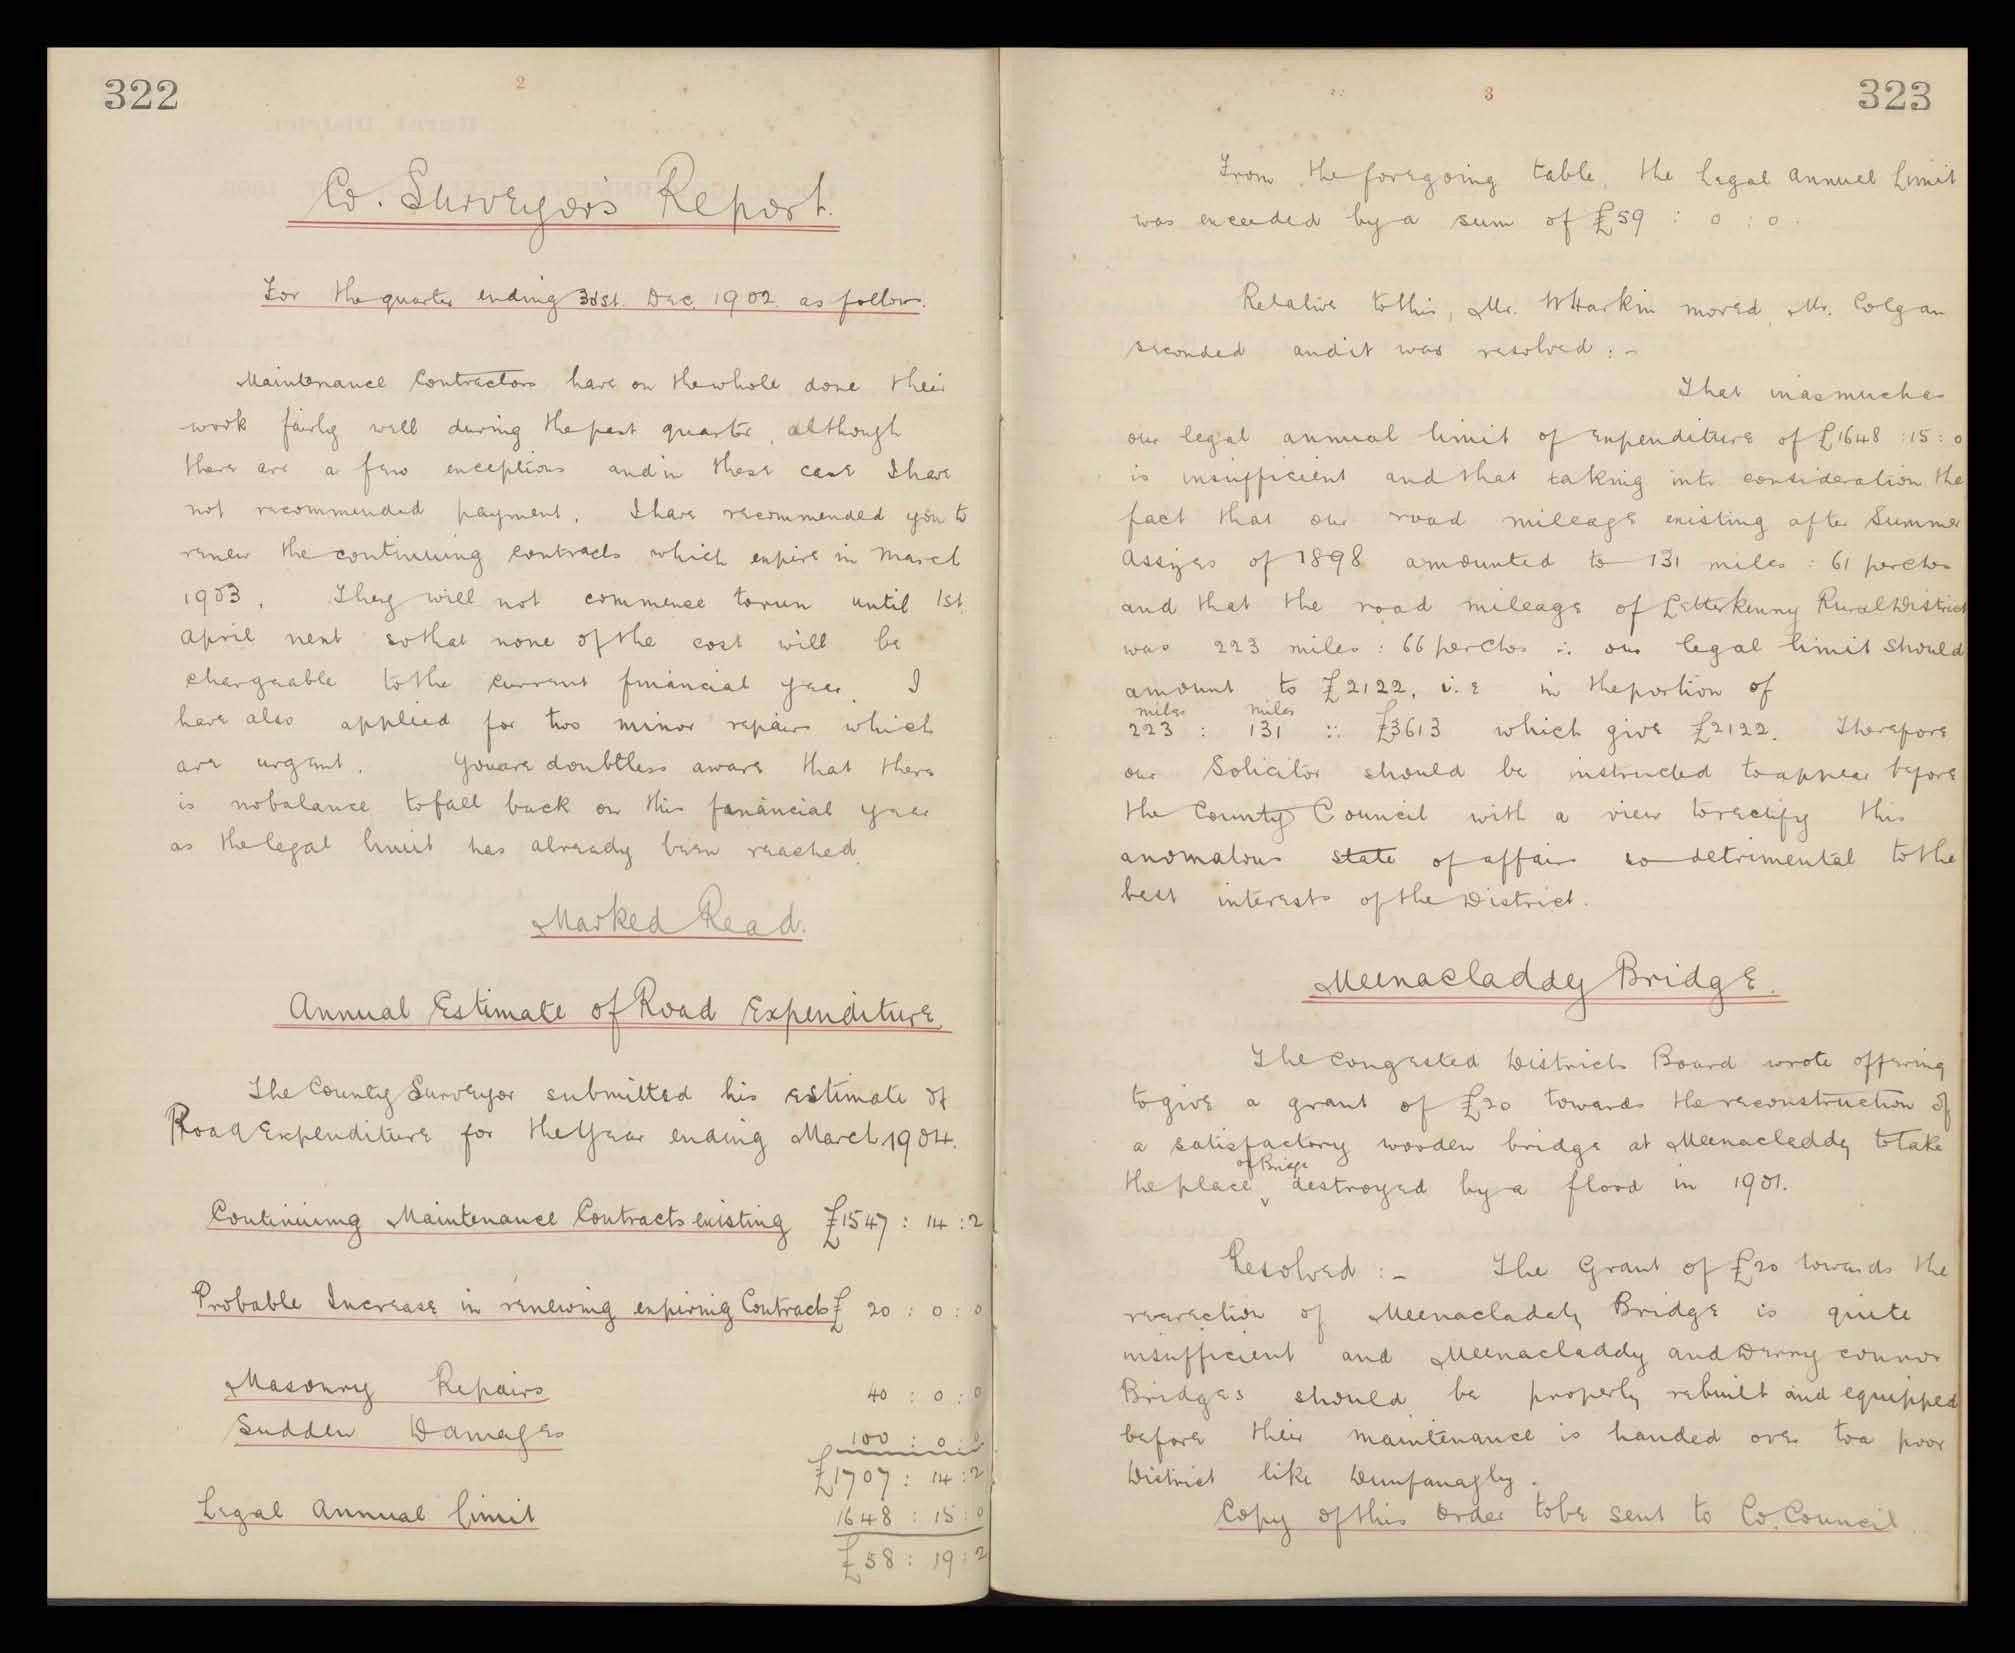 322
2
Co. Surveyor's Report.
For the quarter ending 31st. Dec. 1902. as follows.
Maintenance Contractors have on the whole done their
work fairly well during the past quarter, although
there are a few exceptions and in these case I have
not recommended payment. I have recommended you to
renew the continuing contracts which expire in March
1903. They will not commence to run until 1st.
April next so that none of the cost will be
chargeable to the current financial year. I
have also applied for two minor repairs which
are urgent. You are doubtless aware that there
is no balance to fall back on this financial year
as the legal limit has already been reached.
Marked Read.
Annual Estimate of Road Expenditure
The County Surveyor submitted his estimate of
Road Expenditure for the Year ending March 1904.
Continuing Maintenance Contracts existing £1547 : 14 : 2
Probable Increase in renewing expiring Contracts £ 20 : 0 : 0
Masonry Repairs 40 : 0 : 0
Sudden Damages 100 : 0 : 0
£1707 : 14 : 2
Legal Annual limit 1648 : 15 : 0
£58 : 19 : 2
323
3
From the foregoing table, the legal annual limit
was exceeded by a sum of £59 : 0 : 0.
Relative to this, Mr. W Harkin moved, Mr. Colgan
seconded and it was resolved :-
That inasmuch as
our legal annual limit of expenditure of £1648 : 15 : 0
is insufficient and that taking into consideration the
fact that our road mileage existing after Summer
Assizes of 1898 amounted to 131 miles : 61 perches
and that the road mileage of Letterkenny Rural District
was 223 miles : 66 perches ∴ our legal limit should
amount to £2122, i.e in the portion of
miles miles
223 : 131 :: £3613 which give £2122. Therefore
our Solicitor should be instructed to appear before
the County Council with a view to rectify this
anomalous state of affairs so detrimental to the
best interests of the District.
Meenacladdy Bridge.
The Congested Districts Board wrote offering
to give a grant of £20 towards the reconstruction of
a satisfactory wooden bridge at Meenacladdy to take
of Bridge
the place destroyed by a flood in 1901.
Resolved :- The Grant of £20 towards the
reerection of Meenacladdy Bridge is quite
insufficient and Meenacladdy and Derryconnor
Bridges should be properly rebuilt and equipped
before their maintenance is handed over to a poor
District like Dunfanaghy.
Copy of this order to be sent to Co. Council.